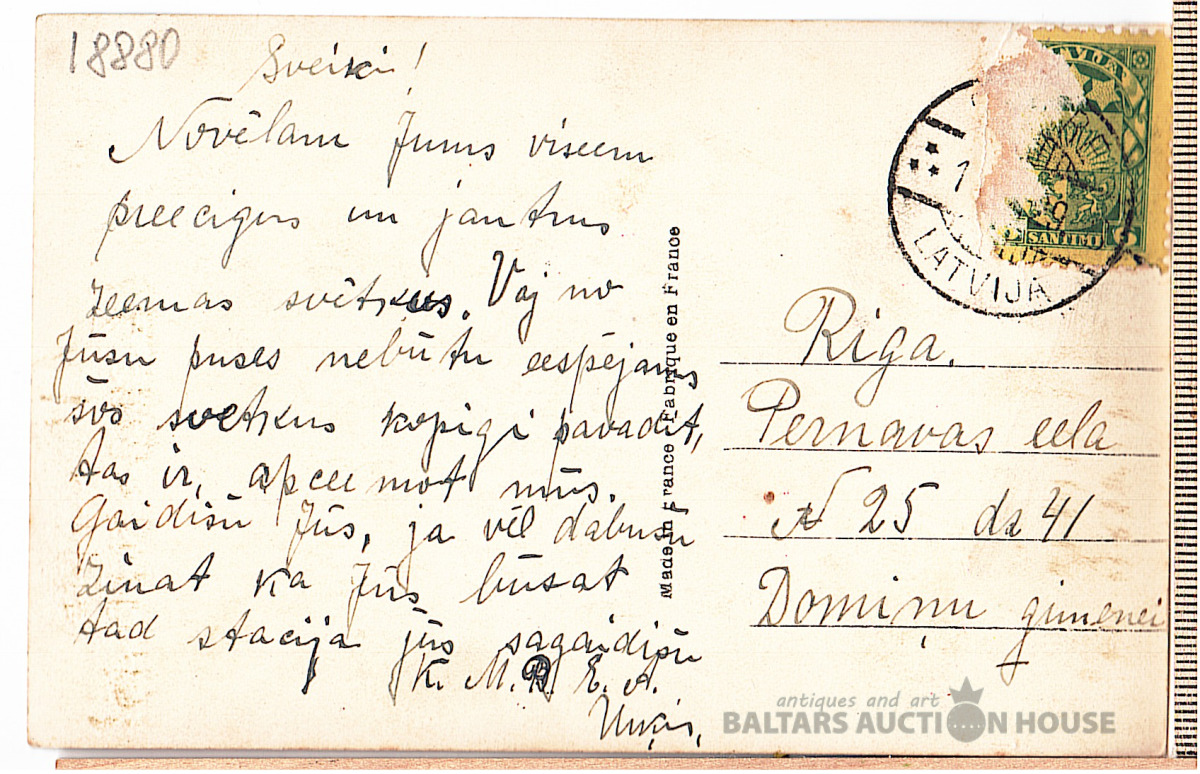 18880
Sveiki!
Novēlam Jums viseem
preecigus un jautrus
zeemas svētkus. Vaj no
Jūsu puses nebūtu eespējams
šos svetkus kopigi pavadit,
tas ir, apceemot mūs.
Gaidisu Jūs, ja vēl dabusu
zinat ka Jūs būsat
tad stacija jūs sagaidišu
K. M. B. E. A.
LATVIJA
SANTIMI
Made in France Fabrique en France
Riga.
Pernavas eela
N 25 dz 41
Domiņu gimenei
antiques and art
BALTARS AUCTION HOUSE